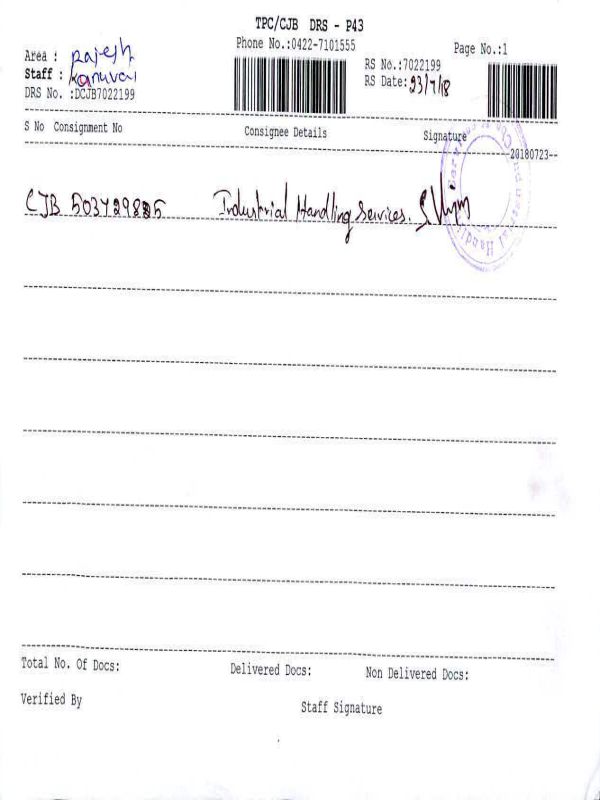 TPC/CJB DRS - P43
Phone No.:0422-7101555
Page No.:1
Area : Rajesh
Staff : Kanuvai
DRS No. :DCJB7022199
RS No.:7022199
RS Date:23/7/18
S No Consignment No Consignee Details Signature
20180723
CJB 503729825 Industrial Handling Services.
Total No. Of Docs: Delivered Docs: Non Delivered Docs:
Verified By Staff Signature